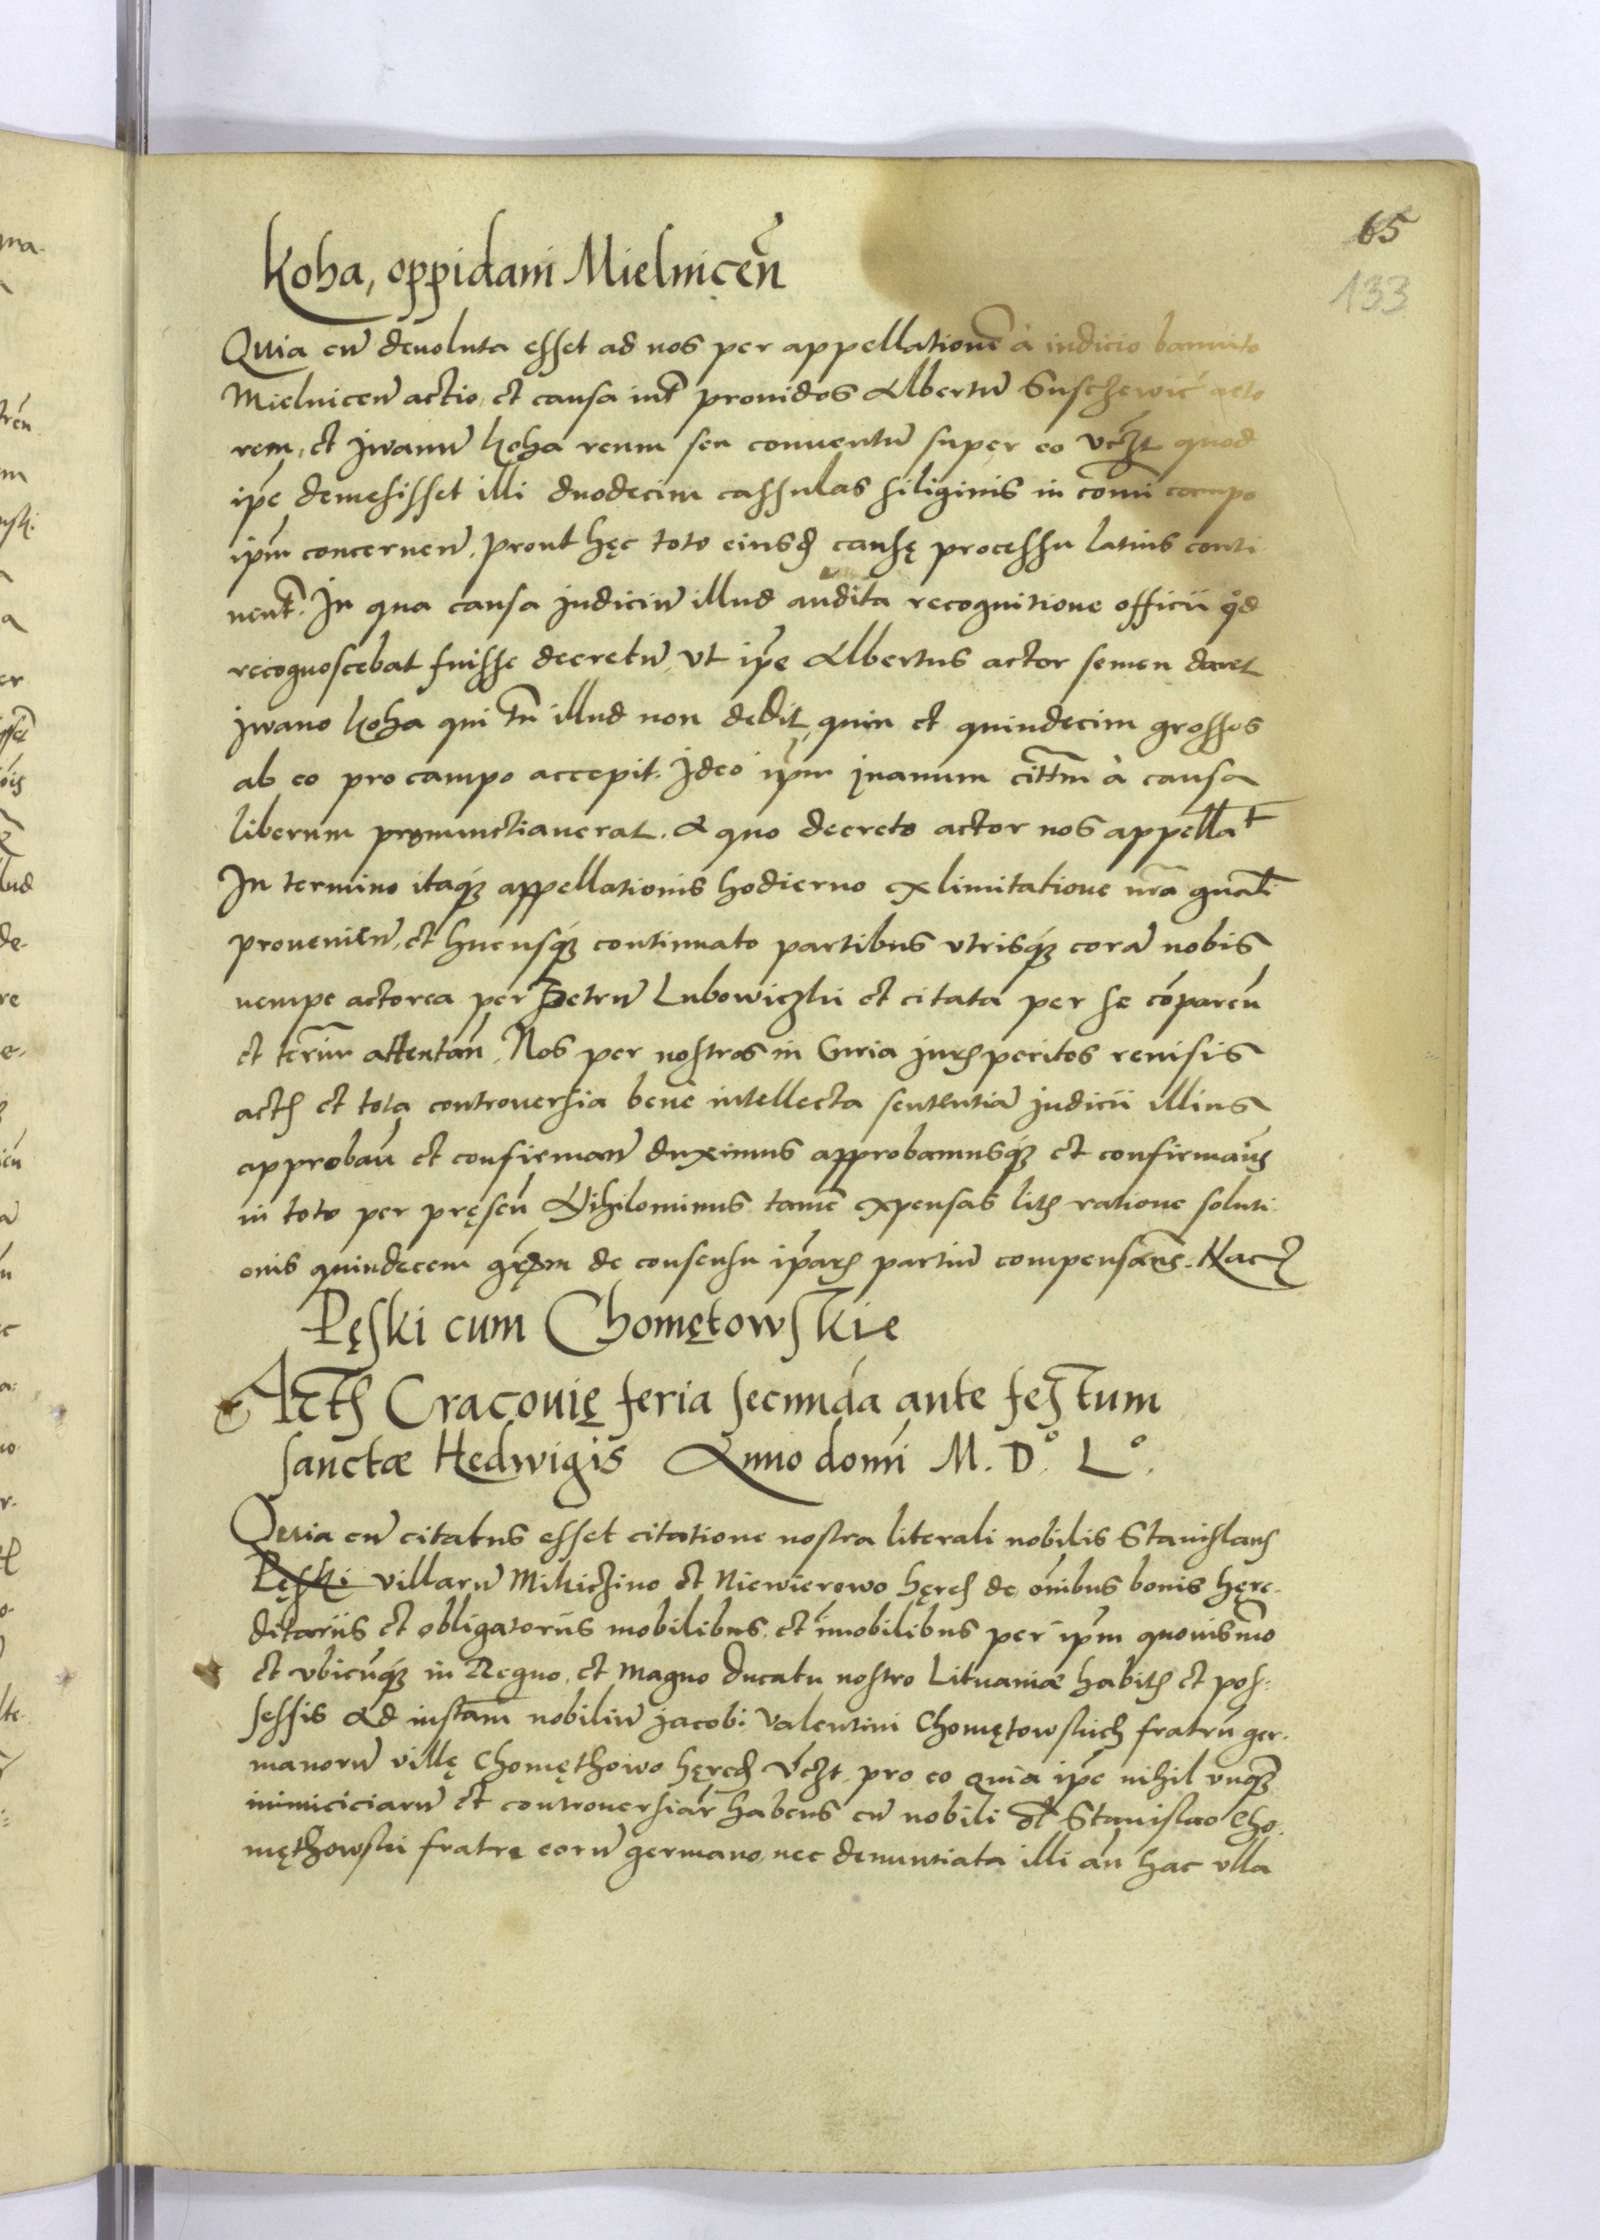 65
133
Koha, oppidani Mielnicen̄
Quia cū deuoluta esset ad nos per appellationē à iudicio bannito
Mielnicen̄ actio, et causa int̄ prouidos Albertū Suschewić acto
rem, et Jwanū Koha reum seu conuentū super eo vt̄ quod
ip̄e demesisset illi duodecim cassulas siliginis in com̄i campo
ip̄m concernen̄, prout hęc toto eiusd̄ causę processu latius conti
nent̄. In qua causa judiciū illud audita recognitione officii q̊d
recognoscebat fuisse decretū, vt ip̄e Albertus actor semen daret
Jwano Koha qui tn̄ illud non dedit, quin et quindecim grossos
ab eo pro campo accepit. Ideo ip̄m juanum citt̄m à causa
liberum pronunctiauerat. A quo decreto actor nos appella̅t
In termino itaq́ appellationis hodierno ex limitatione nr̄a gn̄ali
prouenien̄, et hucusq́ continuato partibus vtrisq́ corā nobis
nempe actorea per Petrū Lubowiczki et citata per se cōparen̄
et ter̄m attentan̄, Nos per nostros in Curia juris peritos reuisis
actis et tota controuersia bene intellecta sententiā judicii illius
approban̄ et confirman̄ duximus approbamusq́ et confirmam̄s
in toto per pręsen̄ Nihilominus tamē expensas litis ratione soluti
onis quindecem gr̄orm de consensu ip̄ar partiū compensan̄s. Har̄
Pęski cum Chomętowskie
Act̄s Cracouię feria secunda ante festum
sanctæ Hedwigis Anno domi̅ M. D.° L.°
Quia cū citatus esset citatione nostra literali nobilis Stanislaus
Pęski villarū Mikiczino et Niewierowo hęres de om̄ibus bonis hęre-
ditariis et obligatoriis mobilibus, et im̄obilibus per ip̄m quouismō
et vbicūq́ in Regno, et Magno Ducatu nostro Lituaniæ habitis et pos-
sessis Ad instan̄m nobiliū Jacobi Valentini Chomętowskich fratrū ger-
manorū villę Chomęthowo hęred̄ vt̄ pro eo quia ip̄e nihil vnq̄
inimiciciarū et controuersiar̄ habens cū nobili ol̄ Stanislao Cho-
męthowski fratre eorū germano, nec denuntiata illi an̄ hac vlla